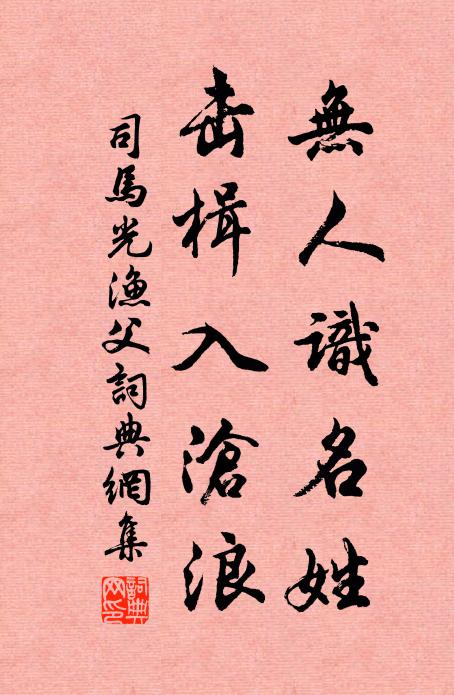 無人識名姓
击楫入滄浪
司馬光漁父詞典網集
詞典
网印